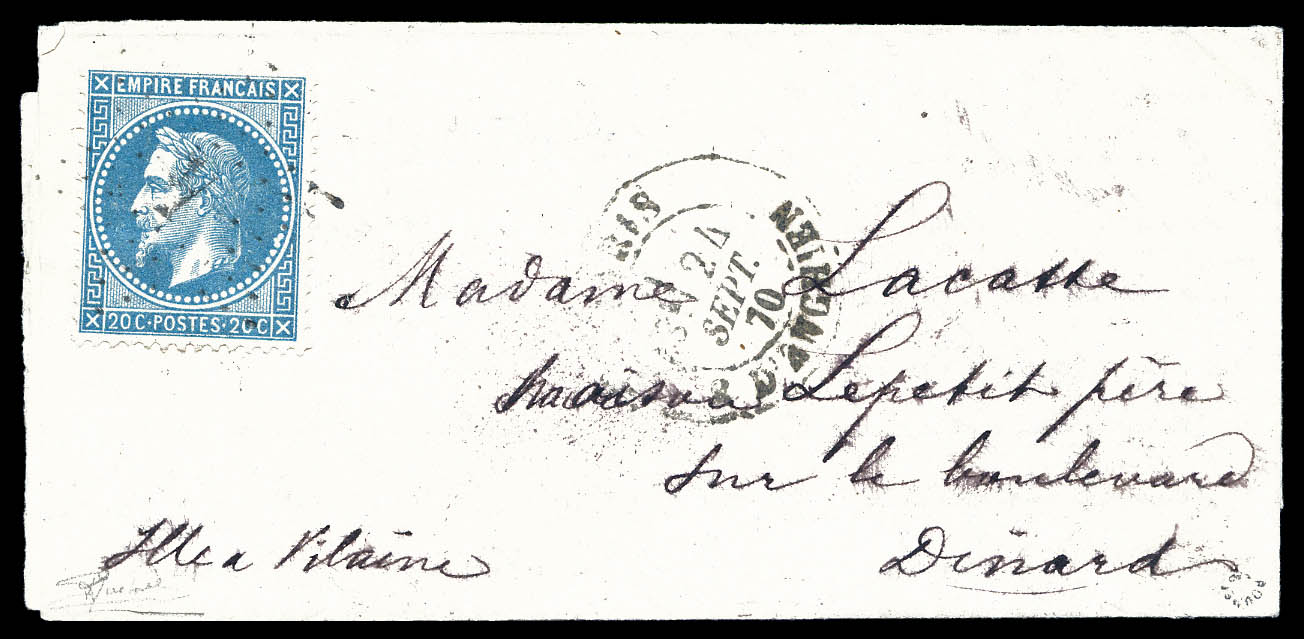 EMPIRE FRANCAIS
20C·POSTES·20C
24
SEPT.
70
Madame Lacasse
maison Lepetit père
sur le boulevard
Dinard
Ille a Vilaine